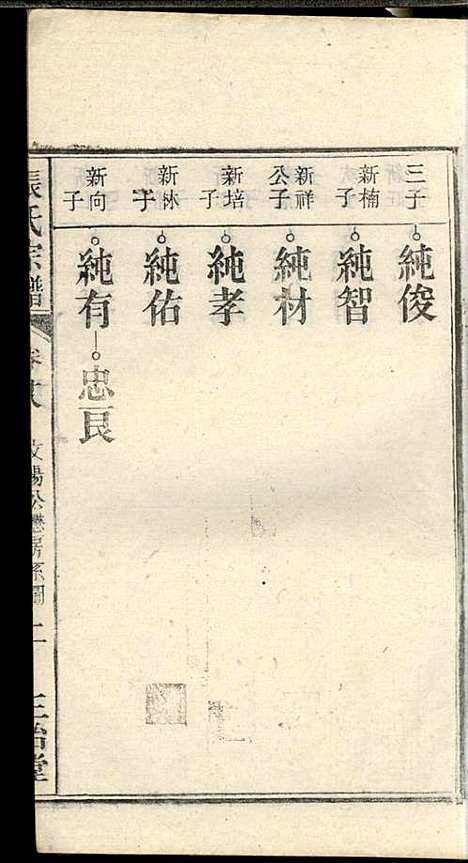 三子 純俊
新楠子 純智
新祥公子 純材
新培子 純孝
新林子 純佑
新向子 純有 忠良
張氏宗譜
文陽公懋房系圖